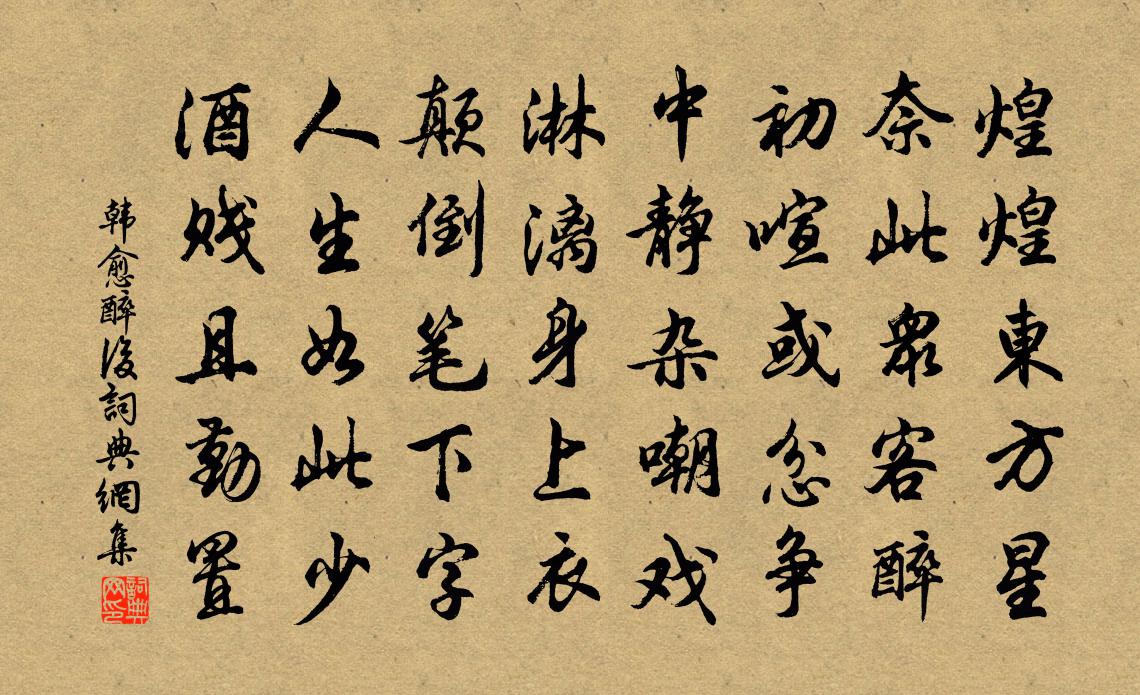 煌煌東方星
奈此眾客醉
初喧或忿争
中静杂嘲戏
淋漓身上衣
颠倒笔下字
人生如此少
酒贱且勤置
韩愈醉後詞典網集
詞典网印